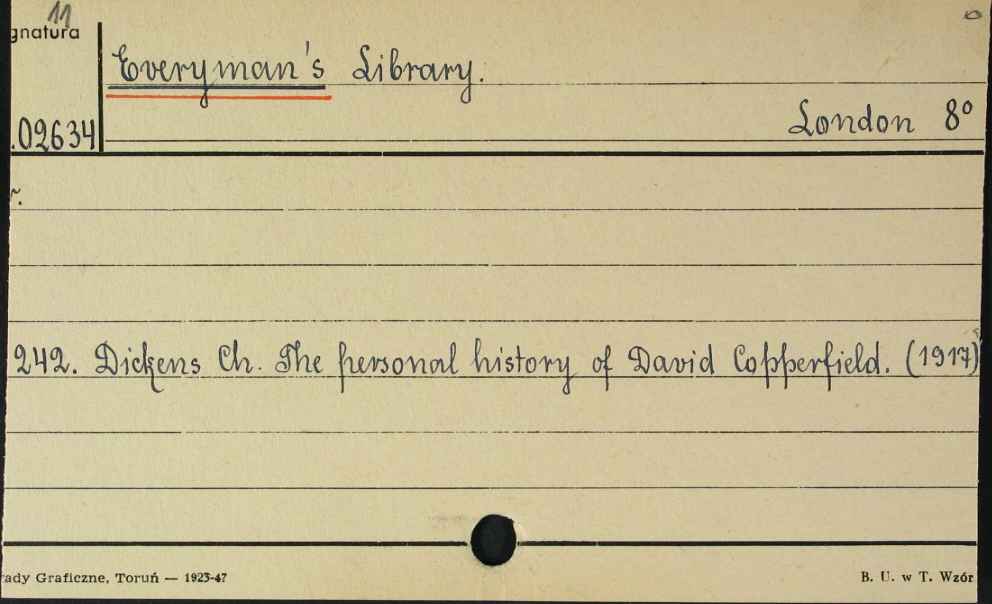 11
gnatura
Everyman's Library.
London 8°
.02634
r.
242. Dickens Ch. The personal history of David Copperfield. (1917)
ady Graficzne, Toruń — 1923-47
B. U. w T. Wzór